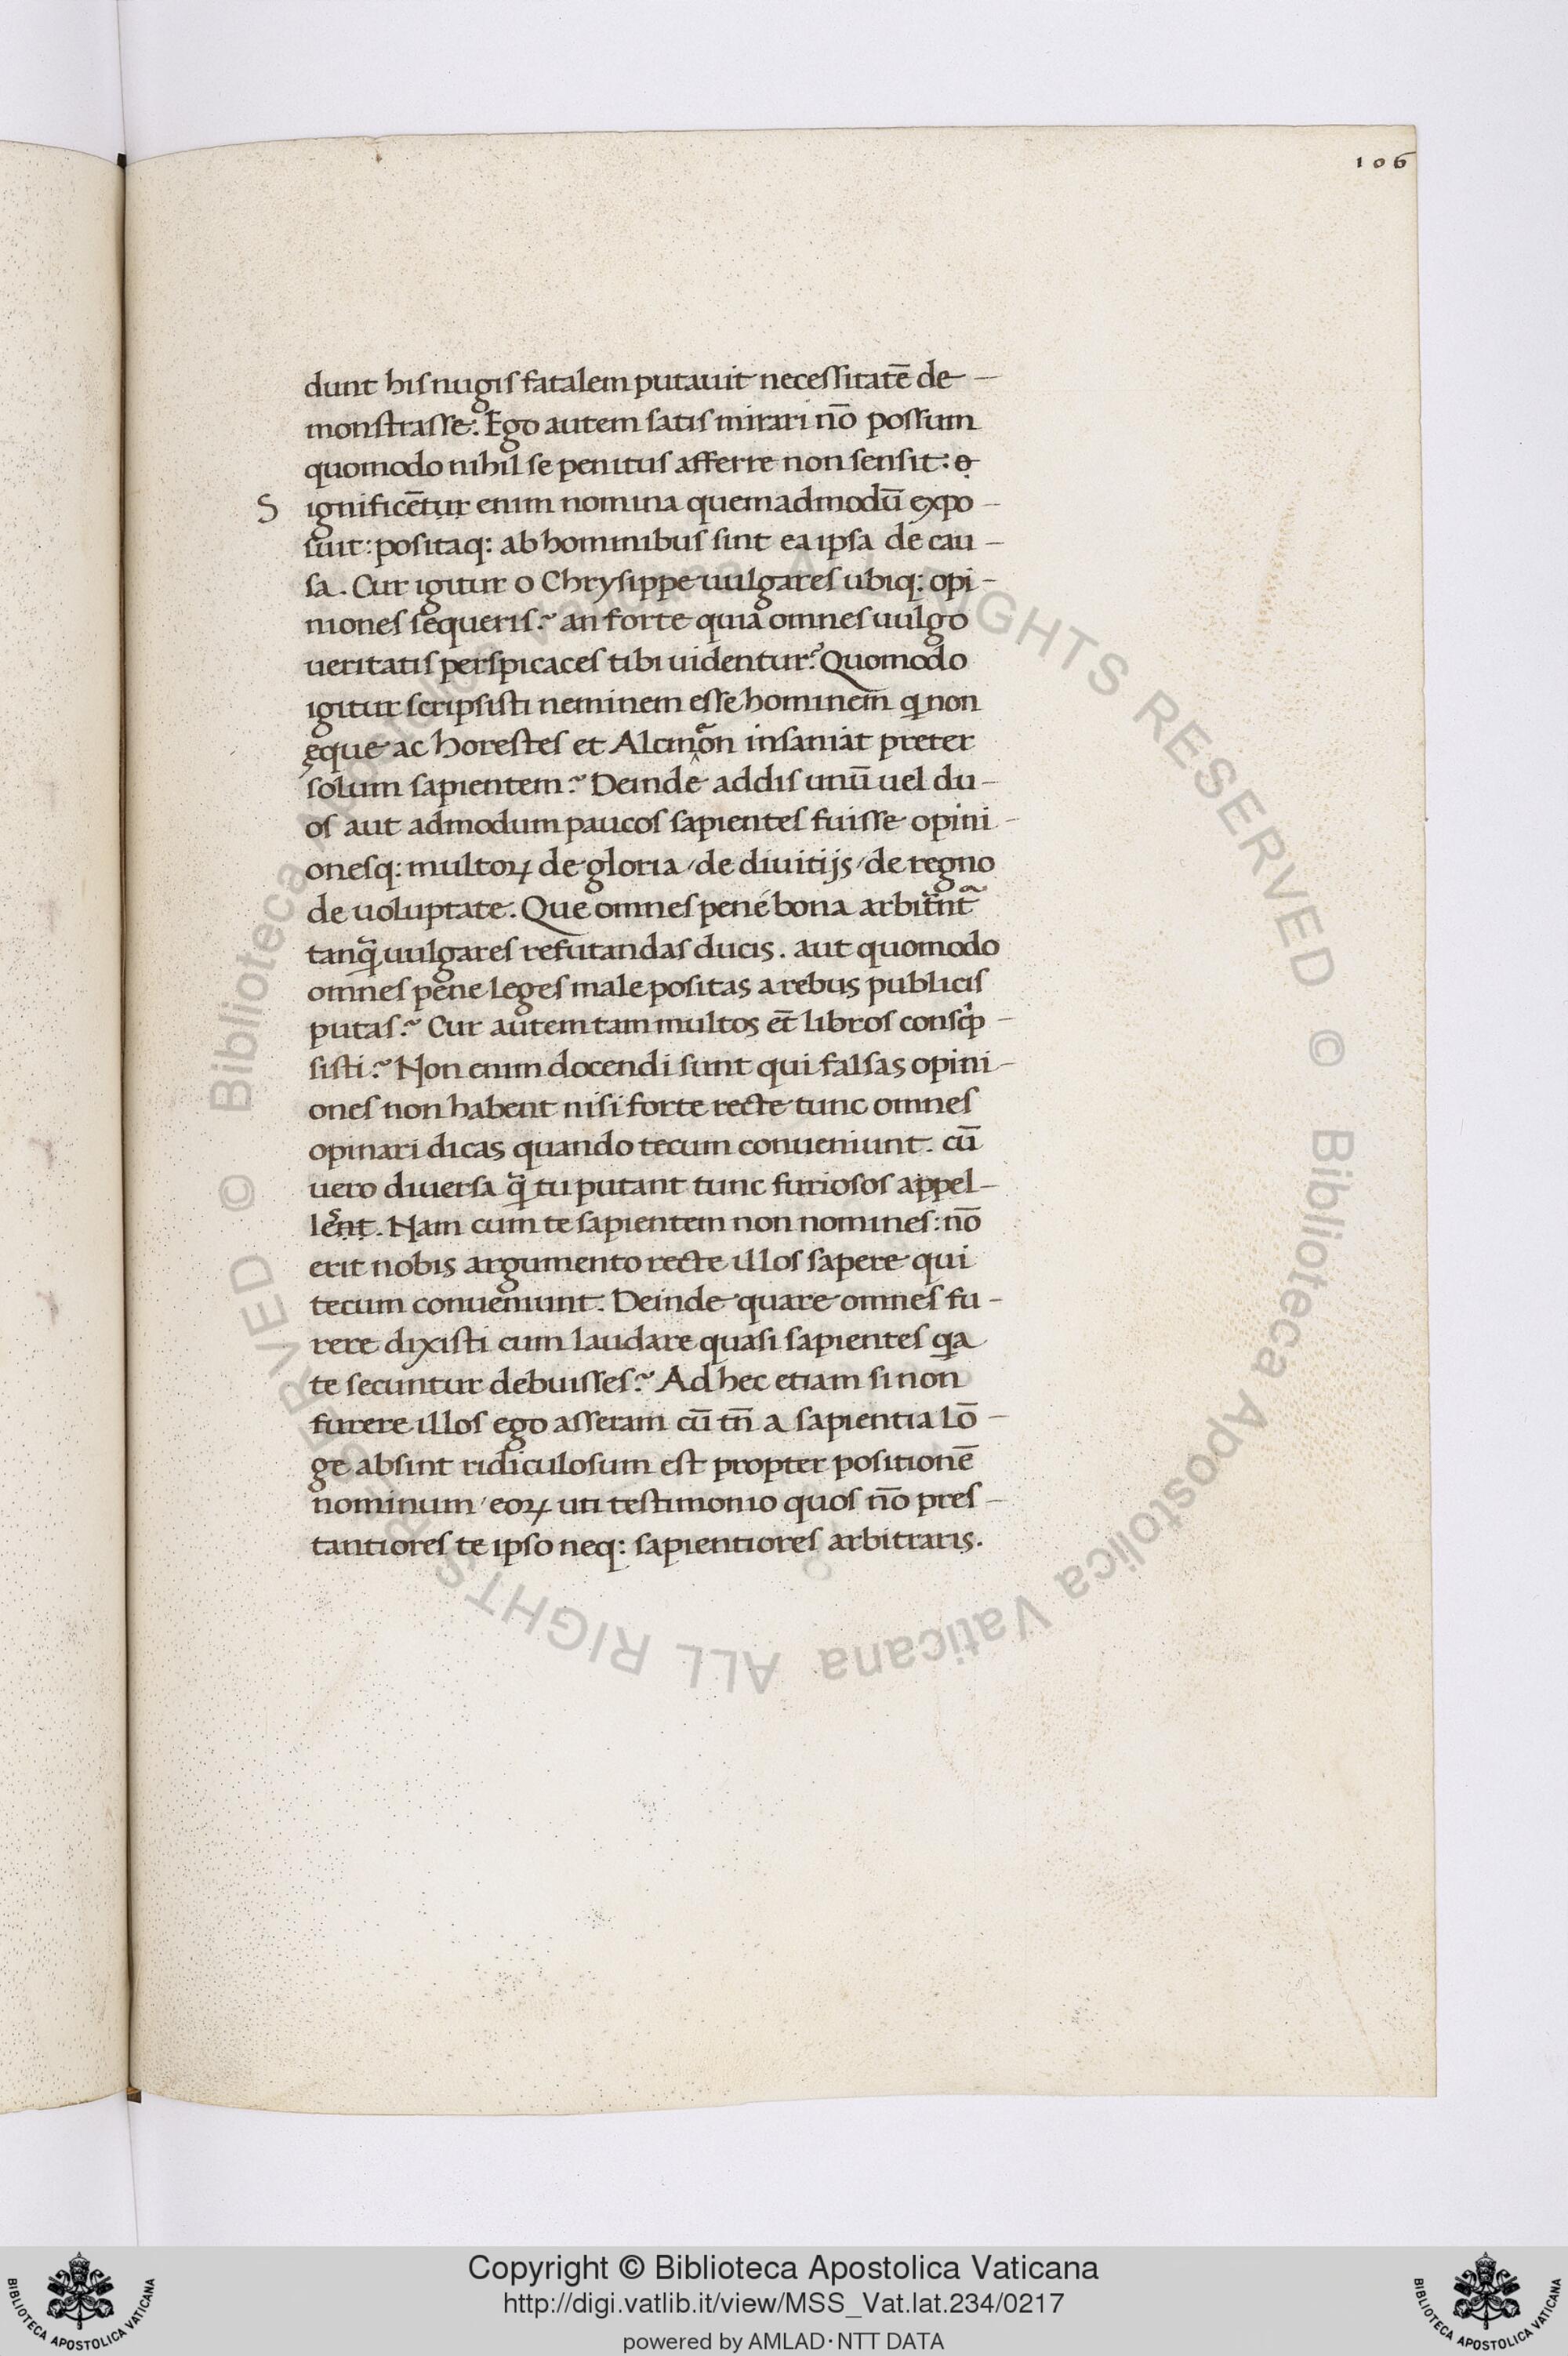 106
dunt hiſ nugiſ fatalem putauit neceſſitatē de –
monſtraſſe. Ego autem ſatiſ mirari nō poſſum
quomodo nihil ſe penituſ afferre non ſenſit:
S ignificētur enim nomina quemadmodū expo –
ſuit: poſitaq: ab hominibuſ ſint ea ipſa de cau –
ſa. Cur igitur o Chryſippe uulgareſ ubiq: opi –
nioneſ ſequeriſ? an forte quia omneſ uulgo
ueritatiſ perſpicaceſ tibi uidentur? Quomodo
igitur ſcripſiſti neminem eſſe hominem̄ q non
ęque ac horeſteſ et Alcmͤon inſaniat preter
ſolum ſapientem? Deinde addiſ unū uel du –
oſ aut admodum paucoſ ſapienteſ fuiſſe opini –
oneſq: multoꝝ de gloria / de diuitijſ / de regno
de uoluptate. Que omneſ pene bona arbitͣntᷣ
tanqͣ uulgareſ refutandaſ duciſ. aut quomodo
omneſ pene legeſ male poſitas a rebus publiciſ
putaſ? Cur autem tam multos et̄ libroſ conſcͥp –
ſiſti? Non enim docendi ſunt qui falſas opini –
oneſ non habent niſi forte recte tunc omneſ
opinari dicas quando tecum conueniunt. cū
uero diuerſa qͣ tu putant tunc furioſoſ appel –
leͣnt. Nam cum te ſapientem non nomineſ: nō
erit nobis argumento recte illoſ ſapere qui
tecum conueniunt. Deinde quare omneſ fu –
rere dixiſti cum laudare quaſi ſapienteſ qa
te ſecuntur debuiſſeſ? Ad hec etiam ſi non
furere illoſ ego aſſeram cū tn̄ a ſapientia lō –
ge abſint ridiculoſum eſt propter poſitionē
nominum / eoꝝ uti teſtimonio quoſ nō preſ –
tantioreſ te ipſo neq: ſapientioreſ arbitraris.
© Biblioteca Apostolica Vaticana ALL RIGHTS RESERVED © Biblioteca Apostolica Vaticana ALL RIGHTS RESERVED
BIBLIOTECA APOSTOLICA VATICANA
Copyright © Biblioteca Apostolica Vaticana
http://digi.vatlib.it/view/MSS_Vat.lat.234/0217
powered by AMLAD·NTT DATA
BIBLIOTECA APOSTOLICA VATICANA